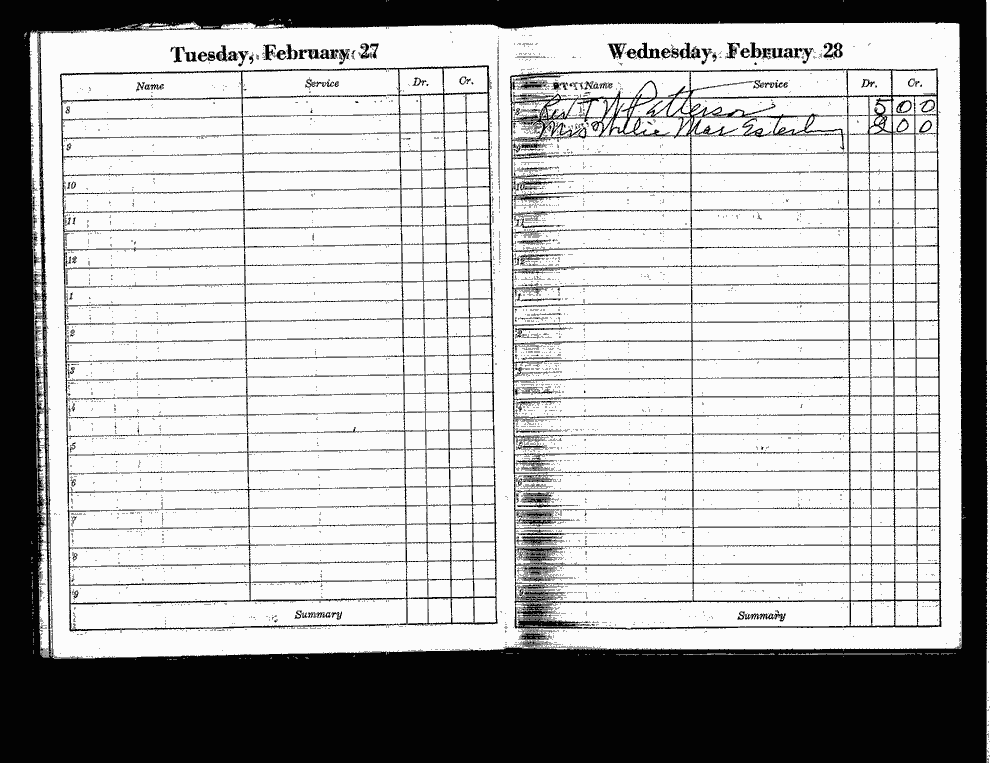 Tuesday, February 27
Name Service Dr. Cr.
8
9
10
11
12
1
2
3
4
5
6
7
8
9
Summary
Wednesday, February 28
Name Service Dr. Cr.
8 Rev T W Patterson 5 0 0
Mrs Willie Mae Esterling 2 0 0
9
10
11
12
1
2
3
4
5
6
7
8
9
Summary